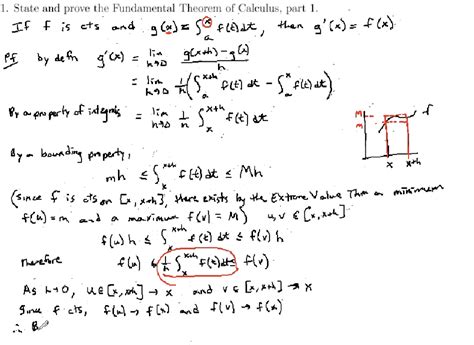 1. State and prove the Fundamental Theorem of Calculus, part 1.
If f is cts and g(x) = ∫_a^x f(t)dt, then g'(x) = f(x).
Pf by defn g'(x) = lim_{h→0} (g(x+h) - g(x))/h
= lim_{h→0} 1/h (∫_a^{x+h} f(t) dt - ∫_a^x f(t)dt)
By a property of integrals = lim_{h→0} 1/h ∫_x^{x+h} f(t) dt
M m f x x+h
By a bounding property,
mh ≤ ∫_x^{x+h} f(t) dt ≤ Mh
(since f is cts on [x, x+h], there exists by the Extreme Value Thm a minimum
f(u) = m and a maximum f(v) = M) u, v ∈ [x, x+h]
f(u) h ≤ ∫_x^{x+h} f(t) dt ≤ f(v) h
Therefore f(u) ≤ 1/h ∫_x^{x+h} f(t)dt ≤ f(v)
As h→0, u ∈ [x, x+h] → x and v ∈ [x, x+h] → x
Since f cts, f(u) → f(x) and f(v) → f(x)
∴ B